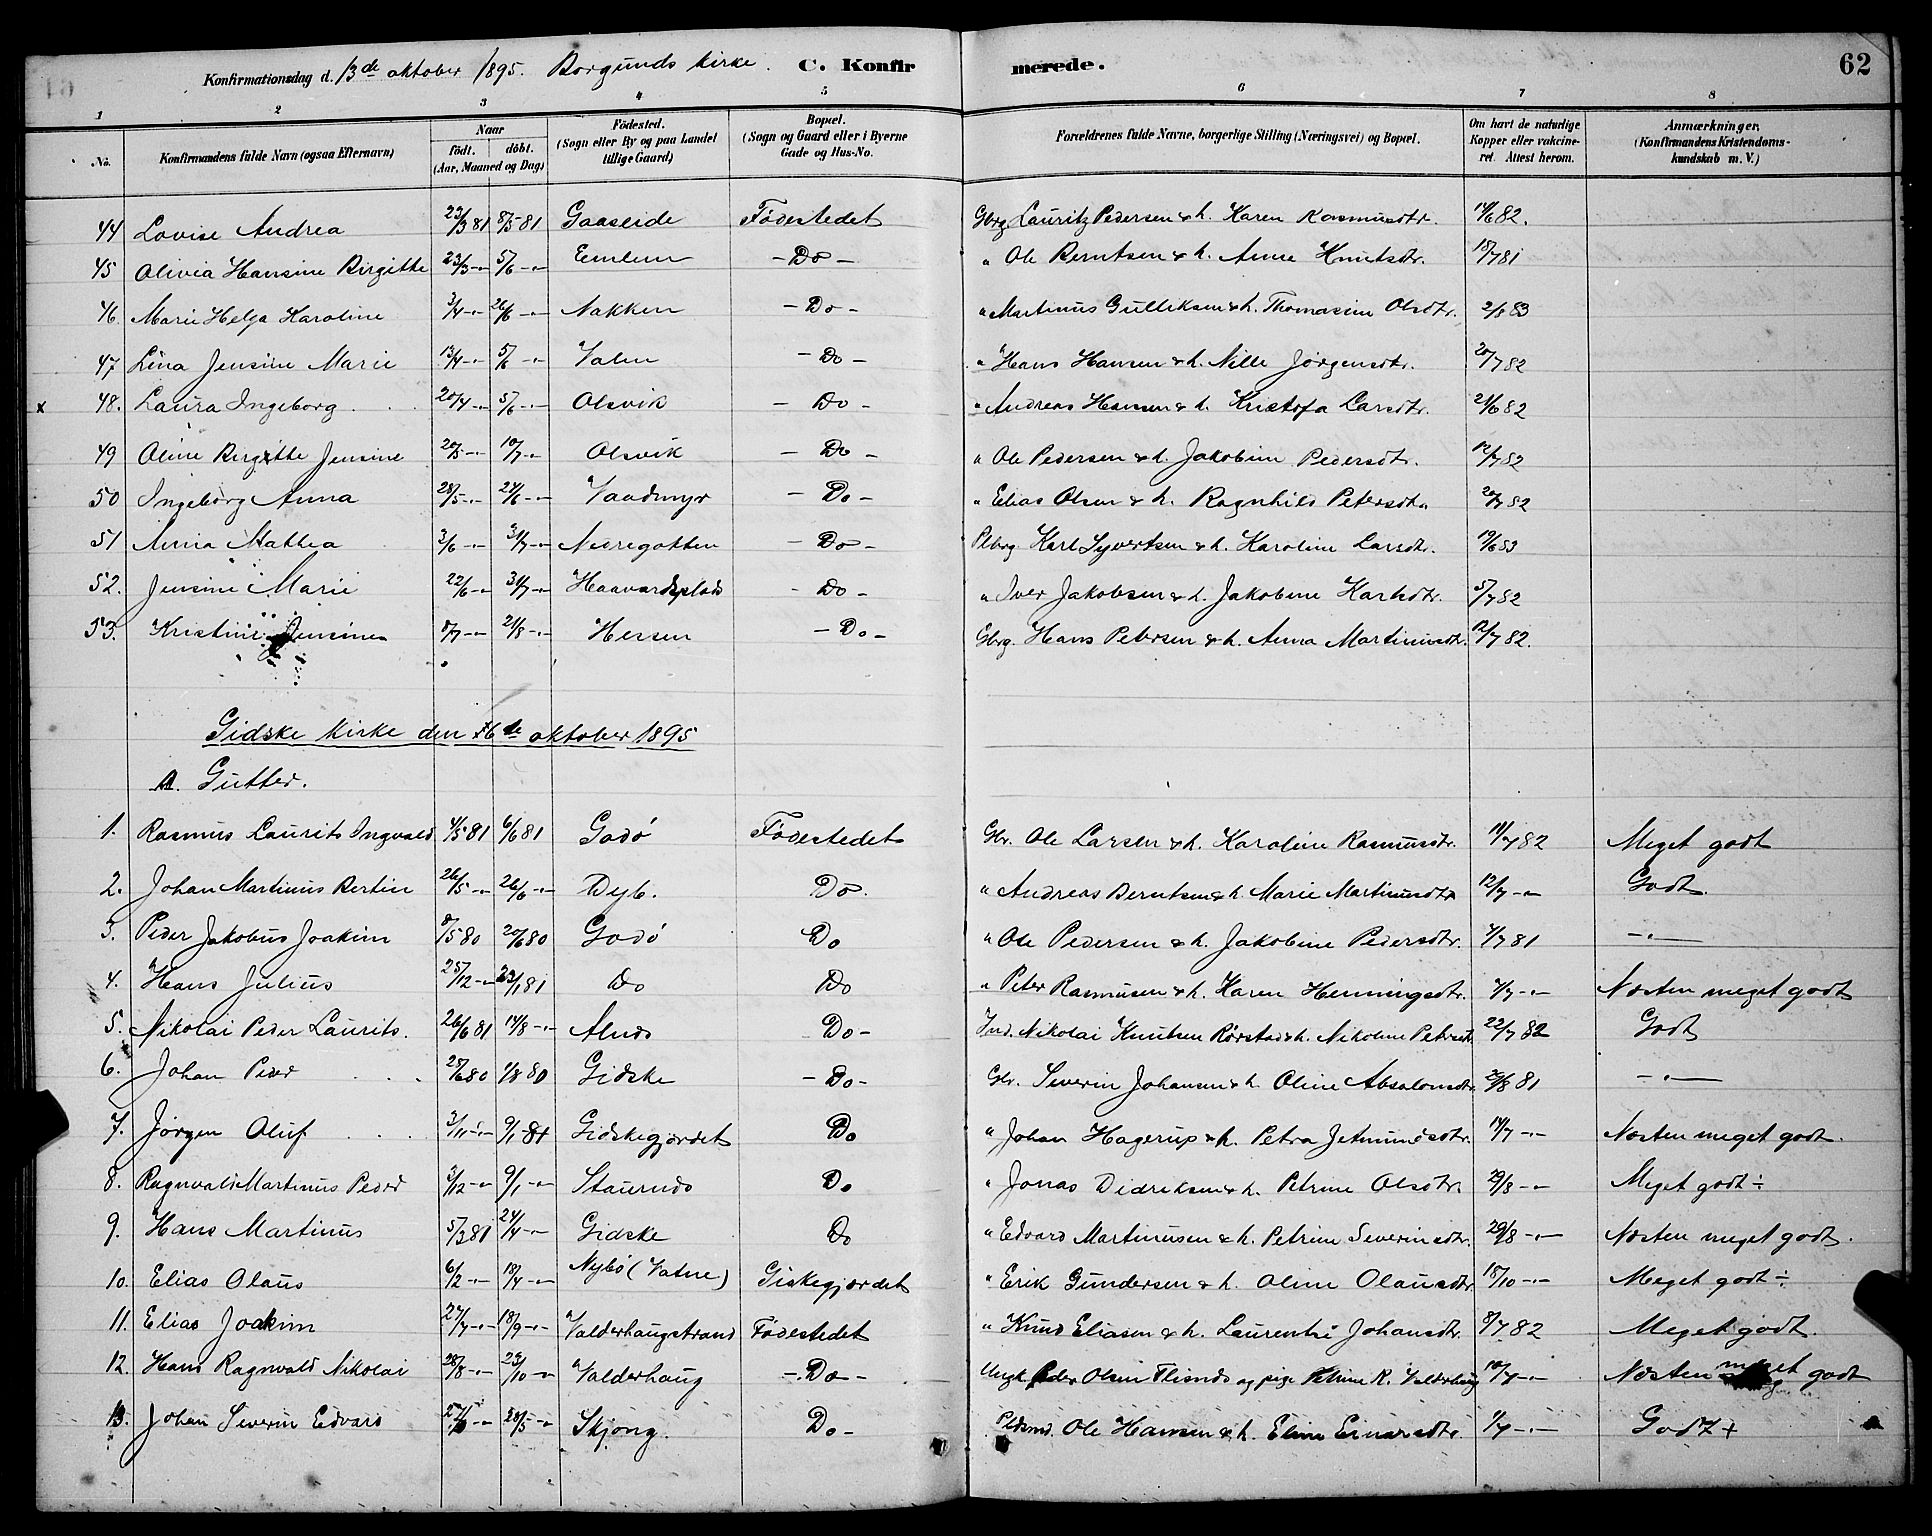 Konfirmationsdag d. 13de oktober 1895. Borgunds kirke. C. Konfirmerede. 62
1 2 3 4 5 6 7 8
No. Konfirmandens fulde Navn (ogsaa Efternavn) Naar født. døbt. (Aar, Maaned og Dag) Fødested. (Sogn eller By og paa Landet tillige Gaard) Bopæl. (Sogn og Gaard eller i Byerne Gade og Hus-No. Forældrenes fulde Navne, borgerlige Stilling (Næringsvei) og Bopæl. Om havt de naturlige Kopper eller vakcineret. Attest herom. Anmærkninger. (Konfirmandens Kristendomskundskab m. V.)
44 Lovise Andrea 23/3 81 8/5 81 Gaaseide Fødestedet Gbrg. Lauritz Pedersen & h. Karen Rasmusdtr. 14/6 82.
45 Olivia Hansine Birgitte 23/3 -"- 5/6 -"- Emlem - Do - " Ole Berntsen & h. Anne Knutsdtr. 18/7 81
46. Marie Helga Karoline 3/4 -"- 26/6 -"- Nakken - Do - " Martinus Gulliksen & h. Thomasine Olsdtr. 2/8 83
47 Lina Jensine Marie 13/4 -"- 5/6 -"- Valen - Do - " Hans Hansen & h. Nille Jørgensdtr. 20/7 82
x 48. Laura Ingeborg 20/4 -"- 5/6 -"- Olsvik - Do - " Andreas Hansen & h. Kristofa Larsdtr. 21/6 82
49 Oline Birgitte Jensine 20/5 -"- 10/7 -"- Olsvik - Do - " Ole Pedersen & h. Jakobine Pedersdtr. 12/7 82
50 Ingeborg Anna 28/5 -"- 24/6 -"- Vaadmyr - Do - " Elias Olsen & h. Ragnhild Petersdtr 20/7 82
51 Anna Mathea 3/6 -"- 31/7 -"- Nedregotten - Do - Plbrg. Karl Syvertsen & h. Karoline Larsdtr. 19/6 83
52. Jensine Marie 22/6 -"- 31/7 -"- Haavardsplads - Do - " Iver Jakobsen & h. Jakobine Karlsdtr. 5/7 82
53. Kristine Jensine 8/7 -"- 21/8 -"- Hessen - Do - Gbrg. Hans Petersen & h. Anna Martinusdtr. 12/7 82.
Gidske kirke den 6de oktober 1895
A. Gutter.
1. Rasmus Laurits Ingvald 4/5 81 6/6 81 Godø Fødestedet Gbr. Ole Larsen & h. Karoline Rasmusdtr. 11/7 82 Meget godt
2. Johan Martinus Bertin 26/5 -"- 26/6 -"- Dyb. Do. " Andreas Berntsen & h. Marie Martinusdtr 12/7 -"- Godt
3. Peder Jakobus Joakim 8/5 80 20/6 80 Godø Do " Ole Pedersen & h. Jakobine Pedersdtr. 4/7 81 -"-
4. Hans Julius 25/12 -"- 23/1 81 Do Do " Peter Rasmusen & h. Karen Henningsdtr. 4/7 -"- Næsten meget godt
5. Nikolai Peder Laurits. 26/6 81 14/8 -"- Alnes Do - Ind. Nikolai Knutsen Rørstad & h. Nikoline Petersdtr 22/7 82 Godt
6. Johan Peder 28/6 80 1/8 80 Gidske - Do - Gbr. Severin Johansen & h. Oline Absalonsdtr. 29/8 81 -"-
7. Jørgen Oluf 3/11 -"- 9/1 81 Gidskegjerdet Do " Johan Hagerup & h. Petra Jetmundsdtr. 14/7 -"- Næsten meget godt.
8. Ragnvald Martinus Peder 3/12 -"- 9/1 -"- Staurnes Do " Jonas Didriksen & h. Petrine Olsdtr. 29/8 -"- Meget godt ÷
9. Hans Martinus 5/3 81 24/4 -"- Gidske Do " Edvard Martinusen & h. Petrine Severinsdtr. 29/8 -"- Næsten meget godt.
10. Elias Olaus 6/2 -"- 18/4 -"- Nybø (Vatne) Giskegjerdet " Erik Gundersen & h. Oline Olausdtr. 18/10 -"- Meget godt ÷
11. Elias Joakim 27/7 -"- 18/9 -"- Valderhaugstrand Fødestedet " Knud Eliasen & h. Laurentse Johansdtr. 8/7 82 Meget godt.
12. Hans Ragnvald Nikolai 28/8 -"- 23/10 -"- Valderhaug - Do - Ungk. Peder Olsen Flisnes og pige Petrine K. Valderhaug 10/7 -"- Næsten meget godt
13. Johan Severin Edvard -"- 28/5 -"- Skjong. Do - Pldsmd. Ole Hansen & h. Eline Einarsdtr. 1/7 -"- Godt +